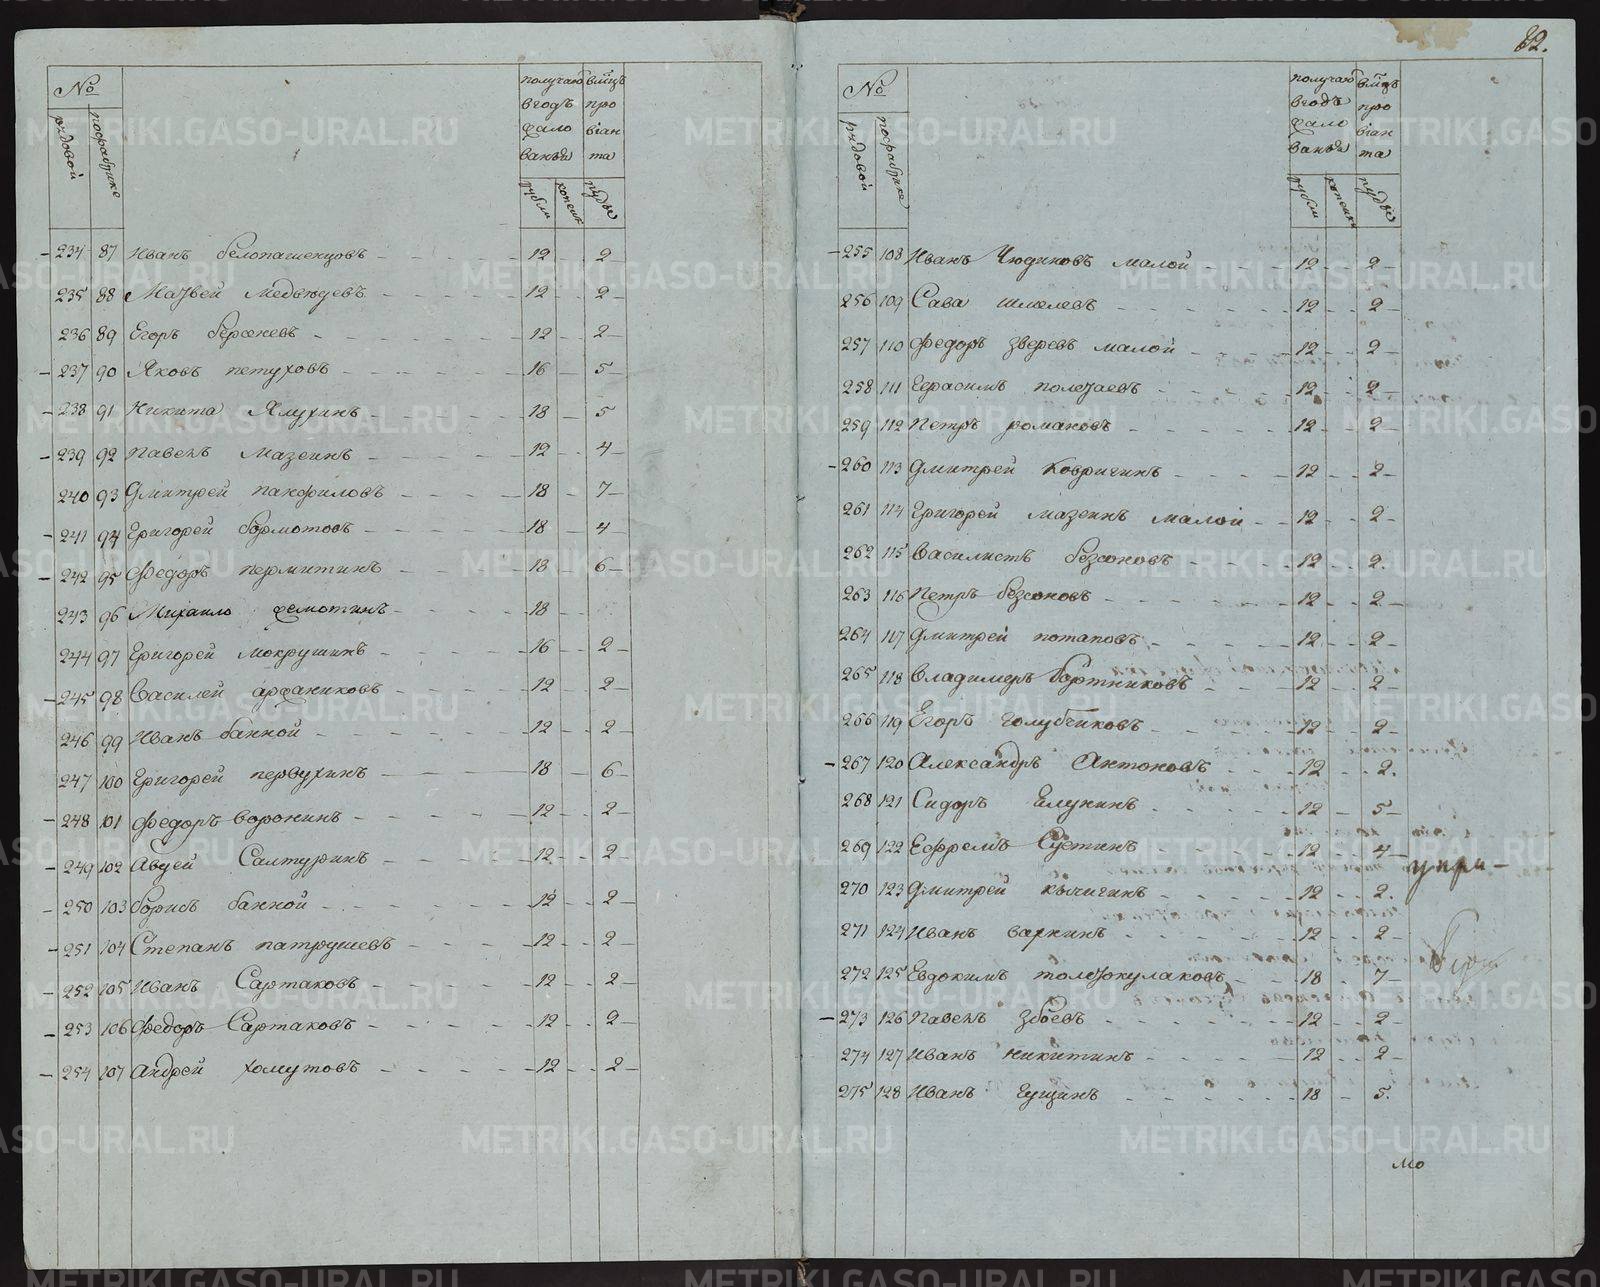 82.
№
рядовой
пофабрике
получаю вгодъ жалованья
рубли
копеик
вмцъ провіанта
пуды
234 87 Иванъ белопашенцовъ 12 2
235 88 Матвей медведевъ 12 2
236 89 Егоръ береневъ 12 2
237 90 Яковъ петуховъ 16 5
238 91 Никита Ялухинъ 18 5
239 92 Павелъ мазеинъ 12 4
240 93 Дмитрей панфиловъ 18 7
241 94 Григорей бормотовъ 18 4
242 95 Федоръ пермитинъ 18 6
243 96 Михаило 18
244 97 Григорей мокрушинъ 16 2
245 98 Василей арфаниковъ 12 2
246 99 Иванъ банной 12 2
247 100 Григорей первухинъ 18 6
248 101 Федоръ воронинъ 12 2
249 102 Авдей Салтуринъ 12 2
250 103 борисъ банной 12 2
251 104 Степанъ патрушевъ 12 2
252 105 Иванъ Сартаковъ 12 2
253 106 Федоръ Сартаковъ 12 2
254 107 Андрей хомутовъ 12 2
№
рядовой
пофабрике
получаю вгодъ жалованья
рубли
копеики
вмцъ провіанта
пуды
255 108 Иванъ Чюдиновъ малой 12 2
256 109 Сава шмелевъ 12 2
257 110 Федоръ зверевъ малой 12 2
258 111 Герасимъ полетаевъ 12 2
259 112 Петръ романовъ 12 2
260 113 Дмитрей Ковригинъ 12 2
261 114 Григорей мазеинъ малой 12 2
262 115 Василистъ безсоновъ 12 2
263 116 Петръ безсоновъ 12 2
264 117 Дмитрей потаповъ 12 2
265 118 Владимеръ бортниковъ 12 2
266 119 Егоръ голубчиковъ 12 2
267 120 Александръ Антоновъ 12 2
268 121 Сидоръ Елунинъ 12 5
269 122 Ефремъ Сустинъ 12 4
270 123 Дмитрей кычигинъ 12 2
271 124 Иванъ варкинъ 12 2
272 125 Евдокимъ толстокулаковъ 18 7
273 126 Павелъ збоевъ 12 2
274 127 Иванъ никитинъ 12 2
275 128 Иванъ гущинъ 18 5
мо
METRIKI.GASO-URAL.RU